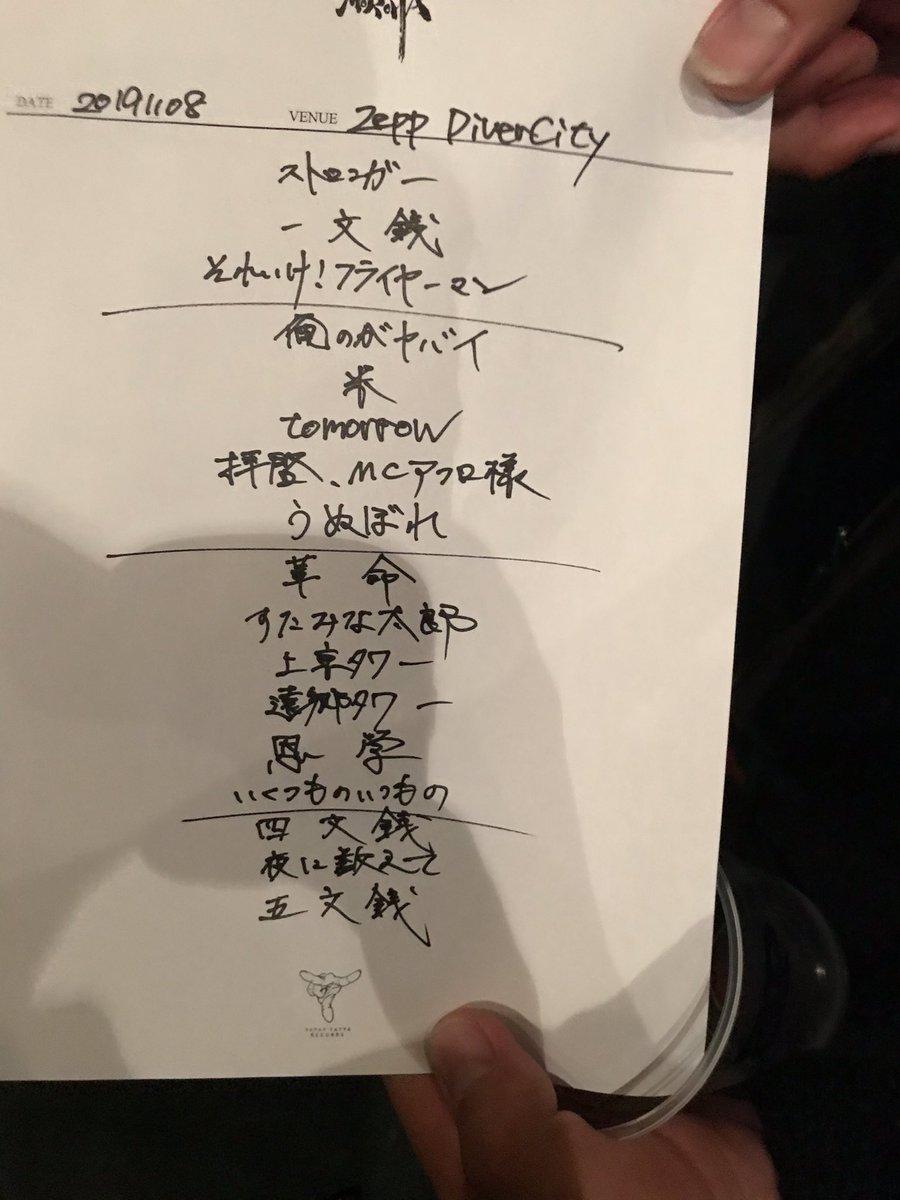 DATE 20191108 VENUE Zepp DiverCity
ストロンガー
一文銭
それいけ!フライヤーマン
俺のがヤバイ
米
tomorrow
拝啓、MCアフロ様
うぬぼれ
革命
すたみな太郎
上京タワー
遠郷タワー
恩学
いくつものいつもの
四文銭
夜に数えて
五文銭